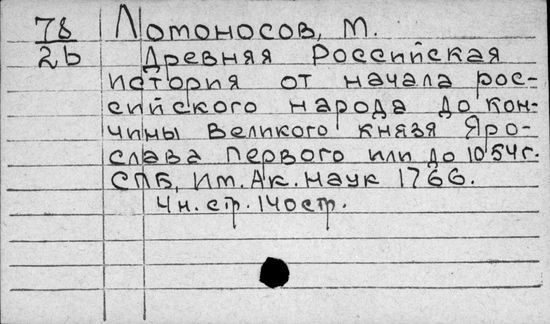 78 Ломоносов, М.
2б Древняя Российская
история от начала рос-
сийского народа до кон-
чины великого князя Яро-
слава Первого или до 1054г.
СПБ, Им. Ак. Наук 1766.
4 н. стр. 140стр.